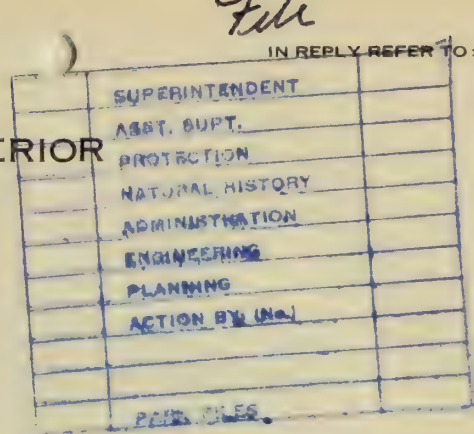 File
IN REPLY REFER TO:
SUPERINTENDENT
ASST. SUPT.
ERIOR
PROTECTION
NATURAL HISTORY
ADMINISTRATION
ENGINEERING
PLANNING
ACTION BY: (No.)
FILES